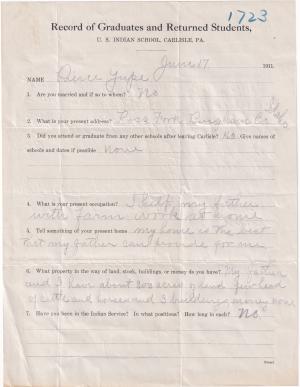 1723
Record of Graduates and Returned Students,
U. S. INDIAN SCHOOL, CARLISLE, PA.
June 17 1911.
NAME
1. Are you married and if so to whom? No
2. What is your present address? Ross Fork Bingham Co
3. Did you attend or graduate from any other schools after leaving Carlisle? No Give names of
schools and dates if possible none
4. What is your present occupation? I help my father
with farm work at home
5. Tell something of your present home my home is the best
that my father can provide for me
6. What property in the way of land, stock, buildings, or money do you have? My father
and I have about 300 acres of land few head
of cattle and horses and 3 buildings money none
7. Have you been in the Indian Service? In what positions? How long in each? No